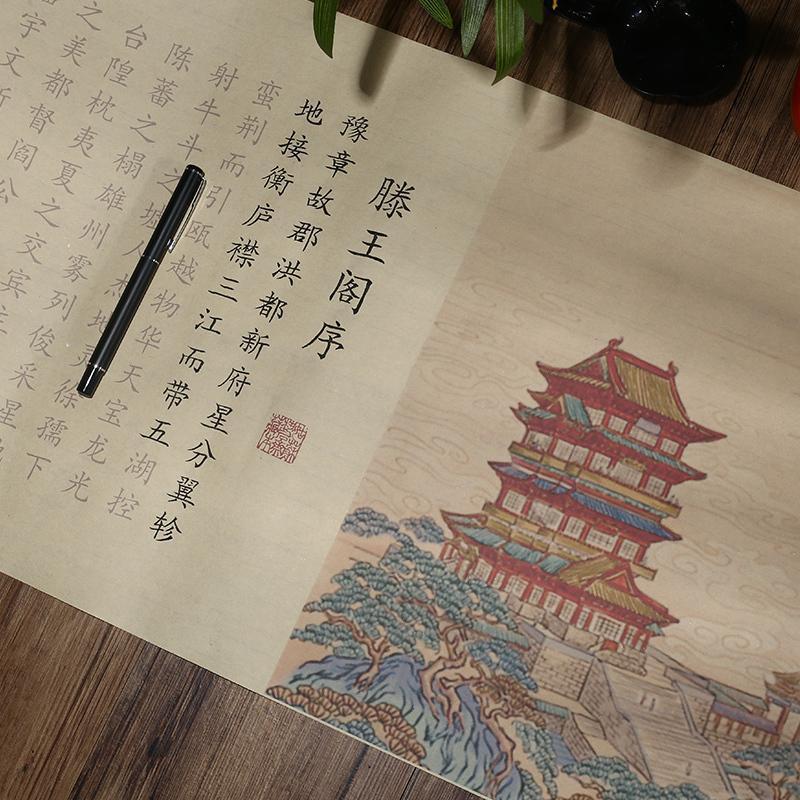 滕王阁序
豫章故郡洪都新府星分翼轸
地接衡庐襟三江而带五湖控
蛮荆而引瓯越物华天宝龙光
射牛斗之墟人杰地灵徐孺下
陈蕃之榻雄州雾列俊采星
台隍枕夷夏之交宾主
之美都督阎公
宇文新